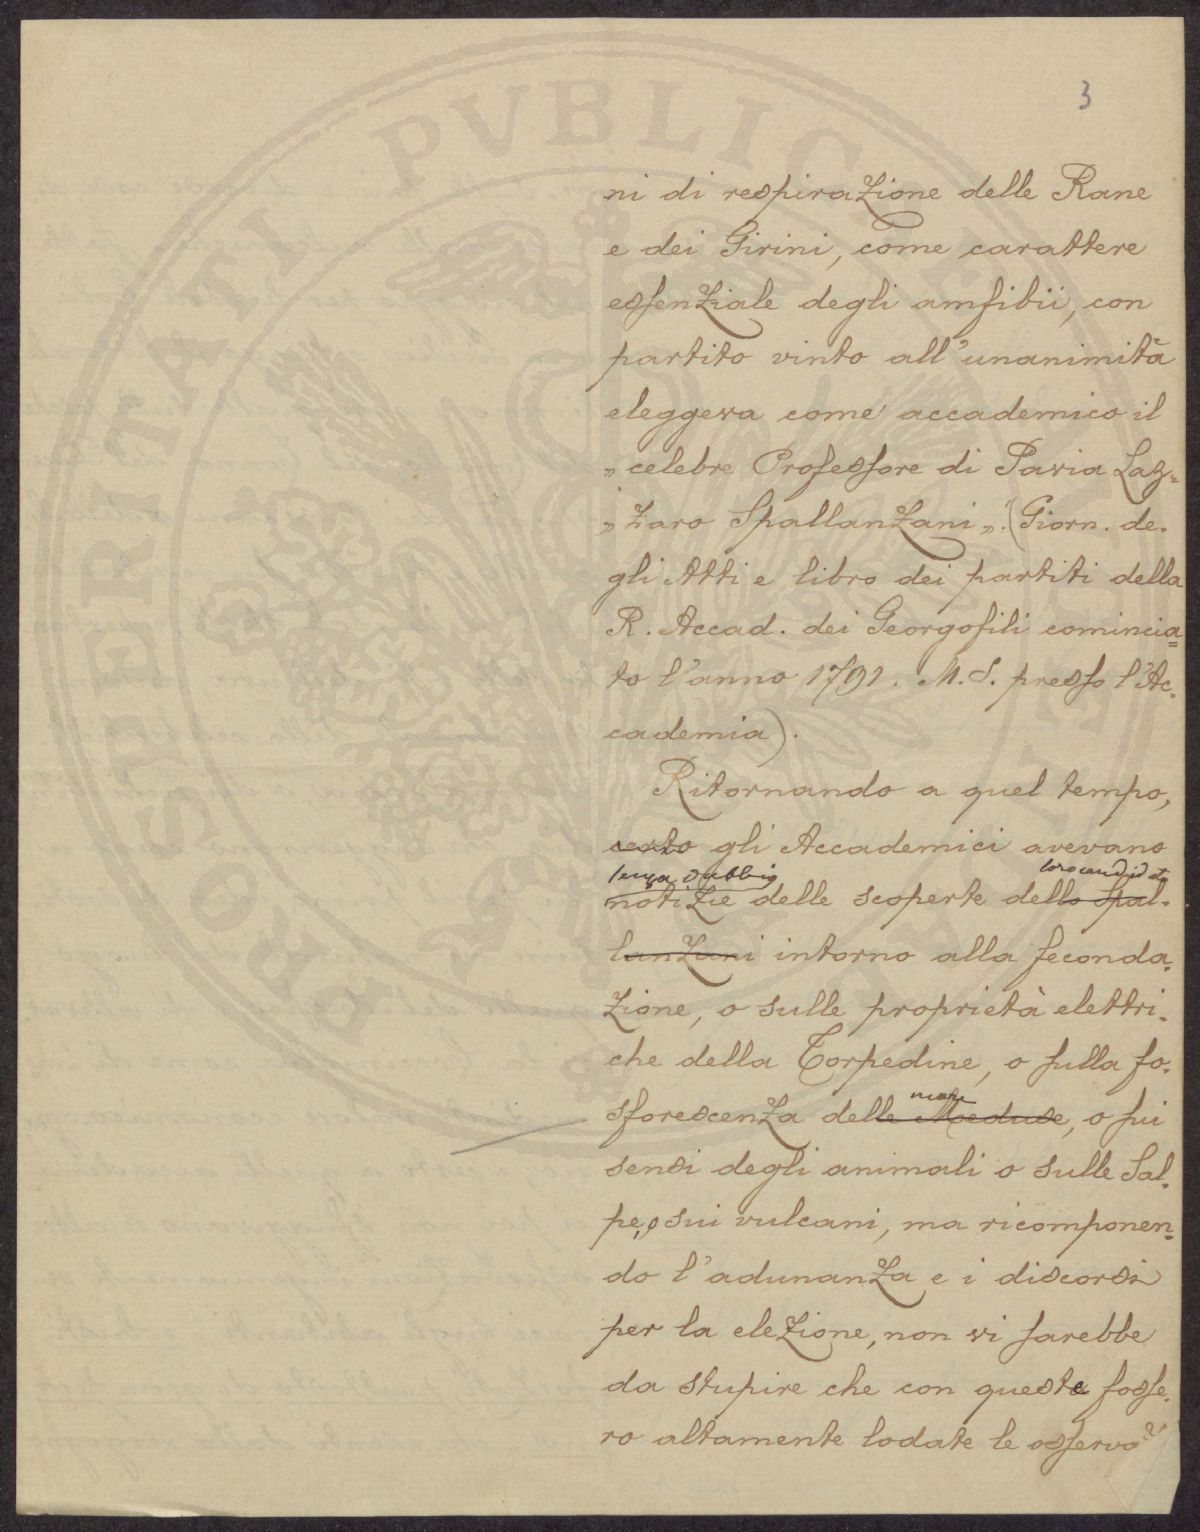 3
ni di respirazione delle Rane
e dei Girini, come carattere
essenziale degli amfibii, con
partito vinto all'unanimità
eleggeva come accademico il
„ celebre Professore di Pavia Laz=
„ zaro Spallanzani „. (Giorn. de-
gli Atti e libro dei partiti della
R. Accad. dei Georgofili comincia=
to l'anno 1791. M.S. presso l'Ac-
cademia).
Ritornando a quel tempo,
certo gli Accademici avevano
senza dubbio loro candidato
notizie delle scoperte dello Spal-
lanzani intorno alla feconda-
zione, o sulle proprietà elettri-
che della Torpedine, o sulla fo-
sforescenza delle Meduse, o sui
sensi degli animali o sulle Sal-
pe, o sui vulcani, ma ricomponen-
do l'adunanza e i discorsi
per la elezione, non vi sarebbe
da stupire che con queste fosse-
ro altamente lodate le osserva
PVBLIC
PROSPERITATI